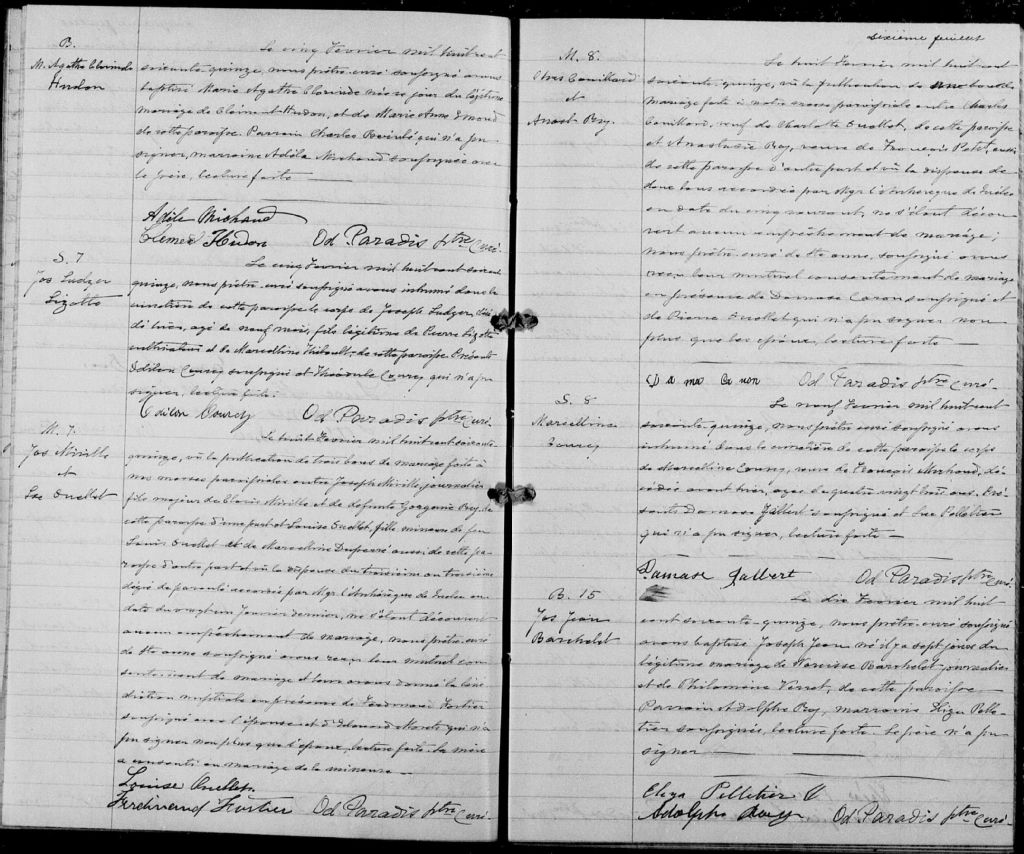 B.
M. Agathe Clorinde
Hudon
Le cinq Février mil huit cent
soixante-quinze, nous prêtre-curé soussigné avons
baptisé Marie Agathe Clorinde née ce jour du légitime
mariage de Clément Hudon, et de Marie Anne
de cette paroisse. Parrain Charles qui n'a pu
signer, marraine Adèle Michaud soussignée avec
le père, lecture faite
Adèle Michaud
Clement Hudon Od Paradis ptre Curé.
S. 7
Jos Ludger
Lizotte
Le cinq Février mil huit cent soixante
quinze, nous prêtre-curé soussigné avons inhumé dans le
cimetière de cette paroisse le corps de Joseph Ludger, décé-
dé hier, agé de neuf mois, fils légitime de Pierre Lizotte
cultivateur et de Marcelline Thibault, de cette paroisse. Présents
Odilon Courcy soussigné et Théodule Courcy qui n'a pu
signer, lecture faite.
Odilon Courcy Od Paradis ptre Curé.
M. 7.
Jos Miville
et
Lse Ouellet
Le huit Février mil huit cent soixante
quinze, vû la publication de trois bans de mariage faite à
nos messes paroissiales entre Joseph Miville, journalier
fils majeur de Miville et de défunte Roy, de
cette paroisse d'une part et Louise Ouellet, fille mineure de feu
Louis Ouellet et de Marcelline Duperré aussi de cette pa-
roisse d'autre part et vû la dispense du troisième au troisième
dégré de parenté accordée par Mgr. l'Archévêque de Québec en
date du vingt un Janvier dernier, ne s'étant découvert
aucun empêchement de mariage, nous prêtre, curé
de Ste Anne soussigné avons reçu leur mutuel con-
sentement de mariage et leur avons donné la béné-
diction nuptiale en présence de Ferdinand Fortier
soussigné avec l'épouse et d'Edouard qui n'a
pu signer non plus que l'époux, lecture faite. La mère
a consenti au mariage de la mineure.
Louise Ouellet
Ferdinand Fortier Od Paradis ptre Curé.
Sixième feuillet
M. 8.
Chs Couillard
et
Anast. Roy.
Le huit Février mil huit cent
soixante, quinze, vû la publication de
mariage faite à notre messe paroissiale entre Charles
Couillard, veuf de Charlotte Ouellet, de cette paroisse
et Anastasie Roy, veuve de François Petit, aussi
de cette paroisse d'autre part et vû la dispense de
deux bans accordée par Mgr l'Archévêque de Québec
en date du cinq courant, ne s'étant décou-
vert aucun empêchement de mariage;
nous prêtre curé de Ste Anne, soussigné avons
reçu leur mutuel consentement de mariage
en présence de Damase Caron soussigné et
de Pierre Ouellet qui n'a pu signer non
plus que les époux, lecture faite
Da ma Ca ron Od Paradis ptre Curé.
S. 8
Marcelline
Courcy
Le neuf Février mil huit cent
soixante-quinze, nous prêtre curé soussigné avons
inhumé dans le cimetière de cette paroisse le corps
de Marcelline Courcy, veuve de François Michaud, dé-
cédée avant hier, agée de quatre vingt huit ans. Pré-
sents Damase Jalbert soussigné et Luc Pelletier
qui n'a pu signer, lecture faite
Damase Jalbert Od Paradis ptre Curé.
B. 15
Jos Jean
Barthelet
Le dix Février mil huit
cent soixante-quinze, nous prêtre curé soussigné
avons baptisé Joseph Jean né il y a sept jours du
légitime mariage de Narcisse Barthelet journalier
et de Philomène Verret, de cette paroisse
Parrain Adolphe Roy, marraine Eliza Pelle-
tier soussignés, lecture faite. Le père n'a pu
signer
Eliza Pelletier
Adolphe Roy Od Paradis ptre Curé.